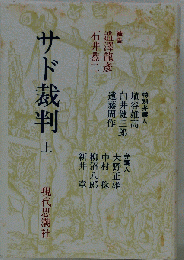 サド裁判 上
被告
澁澤龍彦
石井恭二
特別弁護人
埴谷雄高
白井健三郎
遠藤周作
弁護人
大野正男
中村稔
柳沼八郎
新井章
現代思潮社